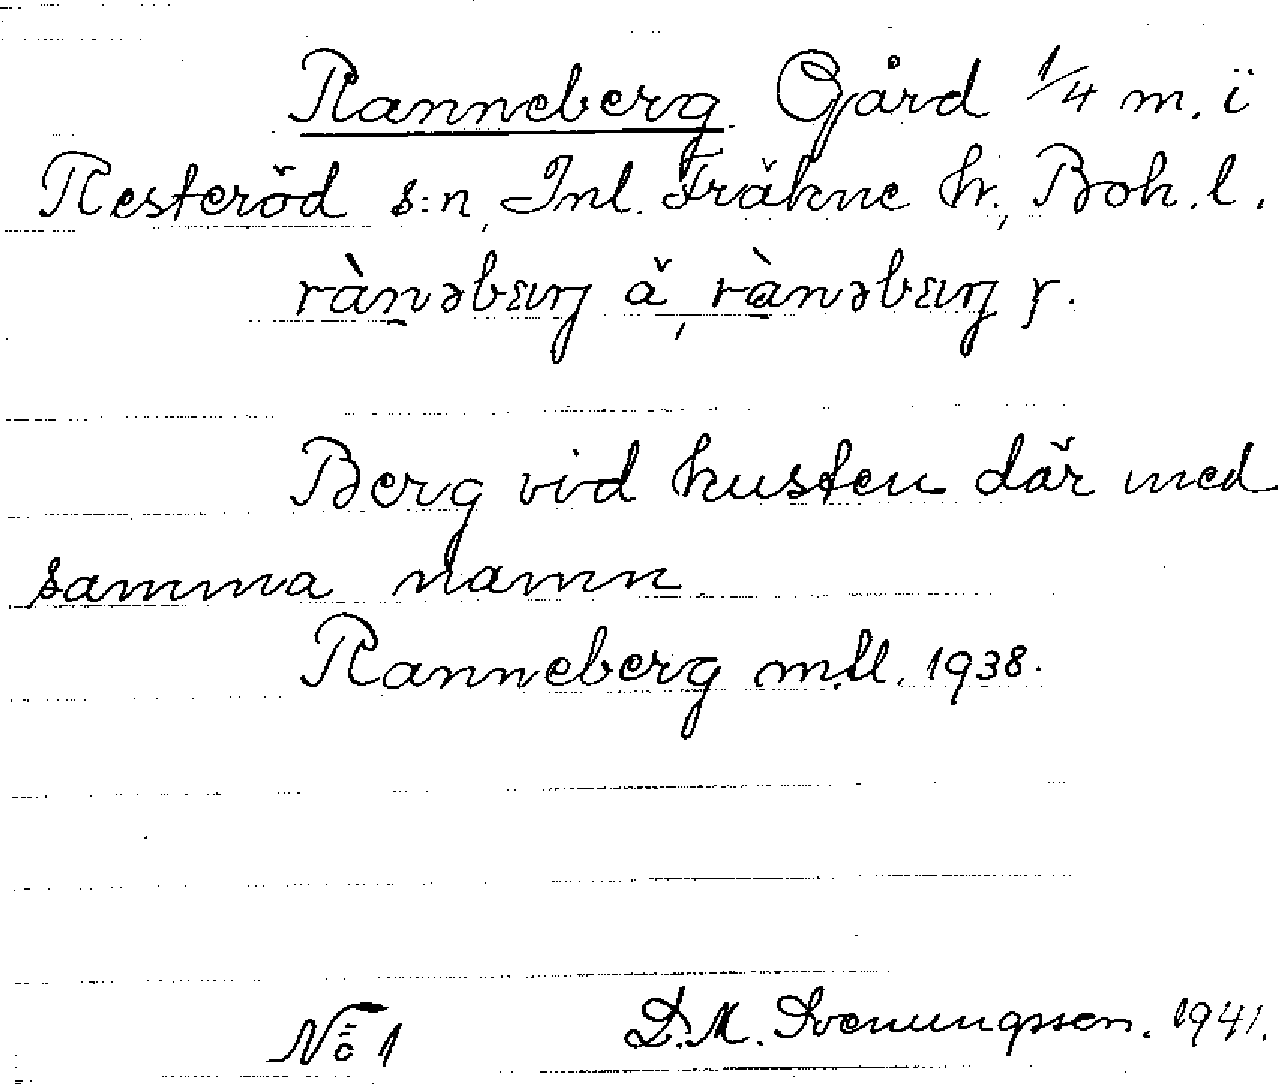 Ranneberg. Gård 1/4 m. i
Resteröd s:n, Inl. Fräkne hr., Boh. l.
rànəbærj ǎ, rànəbærj y.
Berg vid kusten där med
samma namn
Ranneberg m.fl. 1938.
No 1 D.M. Svenungsson. 1941.